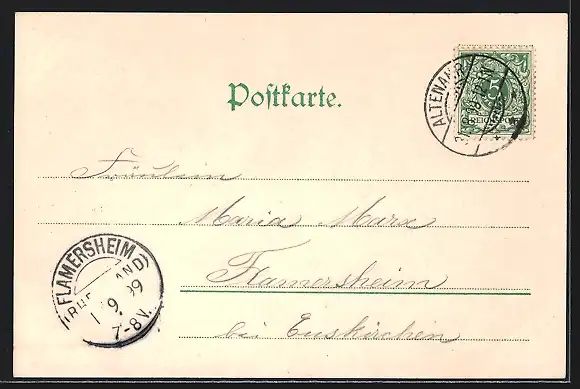 Postkarte.
ALTENAHR
5
REICHSPOST
Fräulein
Maria Marx
Flamersheim
bei Euskirchen
FLAMERSHEIM
1 9 99
7-8 V.